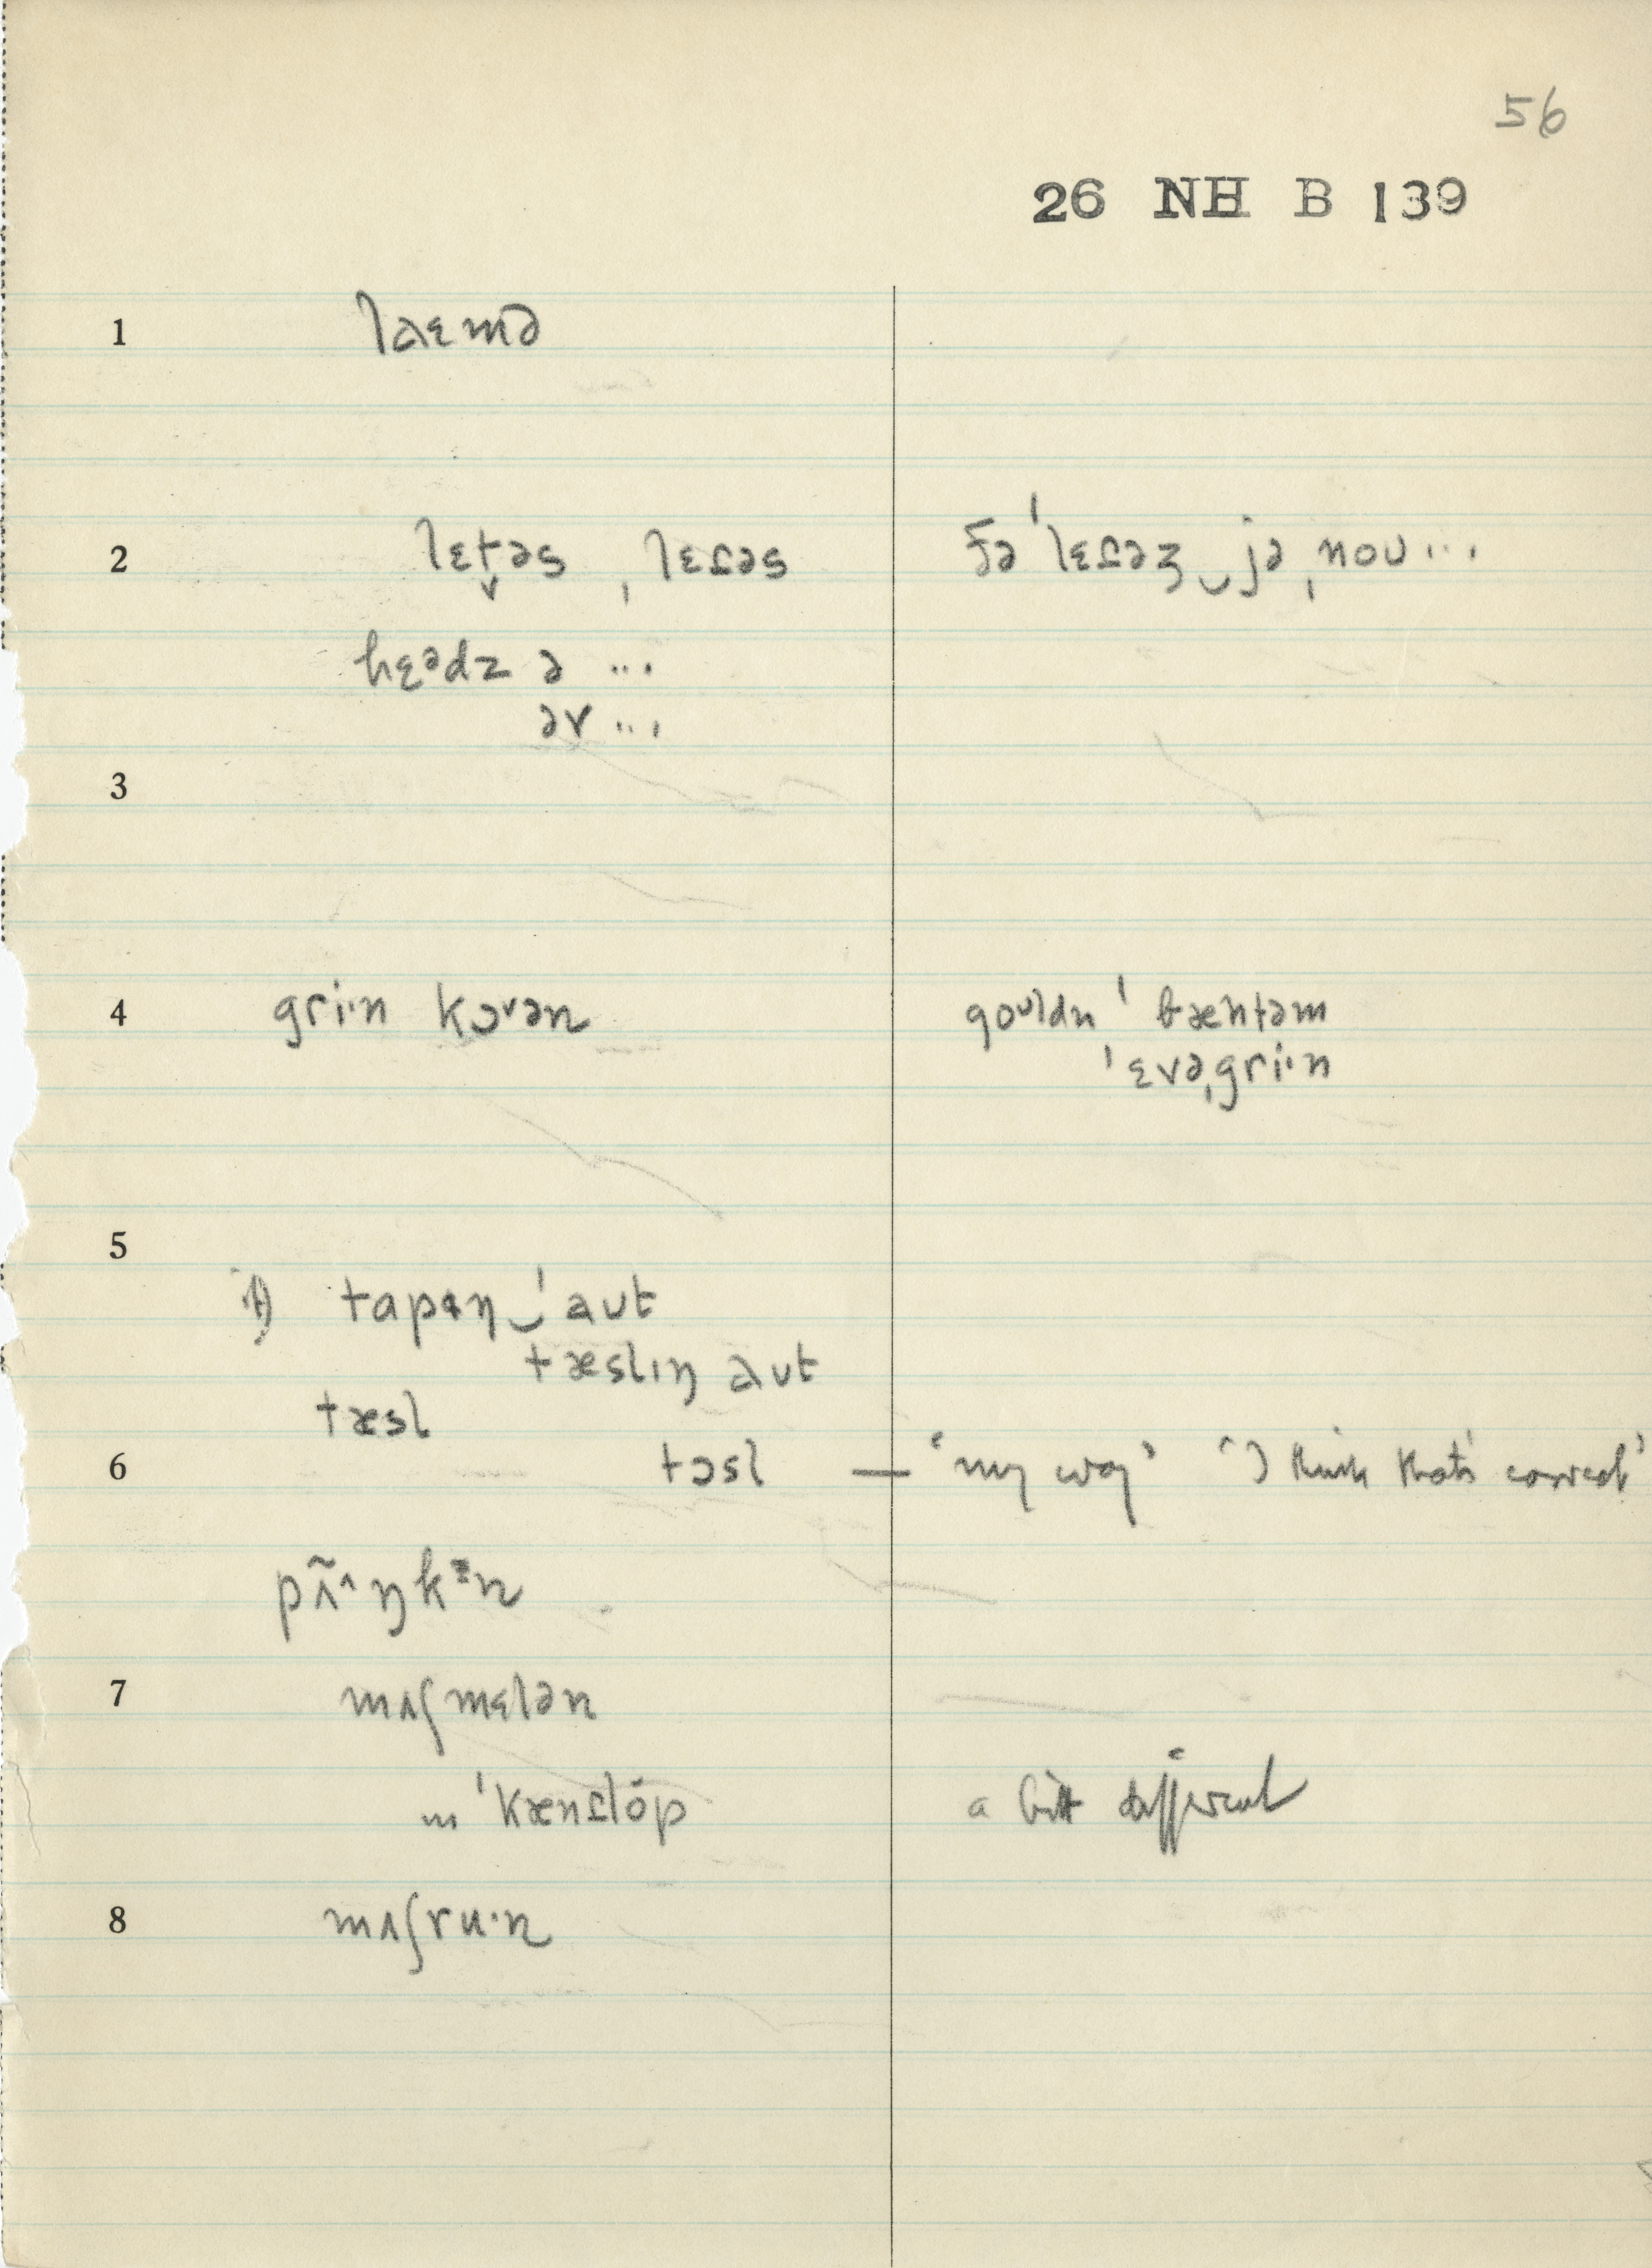 56
26 NH B 139
1 laɛmə
2 lɛt̬əs , lɛɾəs ðə ˈlɛɾəʒ‿jə ˌnoʊ...
hɛᵊdz ə ...
əv ...
3
4 griˑn kɔᵛən goᵘldn ˈbæntəm
ˈɛvəˌgriˑn
5
tapɪŋ‿ˈaʊt
tæslɪŋ aʊt
tæsl
6 tɔsl — 'my way' 'I think that's correct'
pʌ̃ˆŋkᵊn
7 mʌʃmɛlən
ˈkænɾlóp a bit different
8 mʌʃruˑn